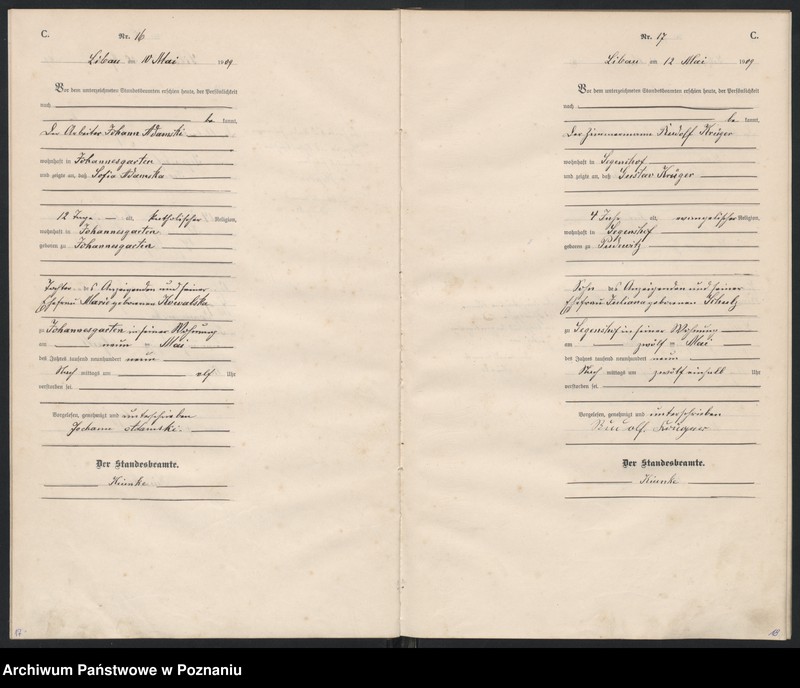 C.
Nr. 16
Libau am 10 Mai 1909
Vor dem unterzeichneten Standesbeamten erschien heute, der Persönlichkeit
nach
be kannt,
Der Arbeiter Johann Adamski
wohnhaft in Johannesgarten
und zeigte an, daß Sofia Adamska
12 Tage alt, katholischer Religion,
wohnhaft in Johannesgarten
geboren zu Johannesgarten
Tochter des Anzeigenden und seiner
Ehefrau Marie geborenen Kowalska
zu Johannesgarten in seiner Wohnung
am neun ten Mai
des Jahres tausend neunhundert neun
Nach mittags um elf Uhr
verstorben sei.
Vorgelesen, genehmigt und unterschrieben
Johann Adamski.
Der Standesbeamte.
17
Nr. 17
C.
Libau am 12 Mai 1909
Vor dem unterzeichneten Standesbeamten erschien heute, der Persönlichkeit
nach
be kannt,
Der Zimmermann Rudolf Krüger
wohnhaft in Segenshof
und zeigte an, daß Gustav Krüger
4 alt, evangelischer Religion,
wohnhaft in Segenshof
geboren zu Pudewitz
Sohn des Anzeigenden und seiner
Ehefrau Juliana geborenen Schulz
zu Segenshof in seiner Wohnung
am zwölf ten Mai
des Jahres tausend neunhundert neun
Nach mittags um zwölf einhalb Uhr
verstorben sei.
Vorgelesen, genehmigt und unterschrieben
Rudolf Krüger
Der Standesbeamte.
18
Archiwum Państwowe w Poznaniu